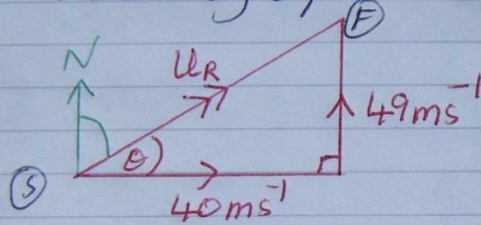 F
N
U_R
49ms⁻¹
θ
S
40ms⁻¹